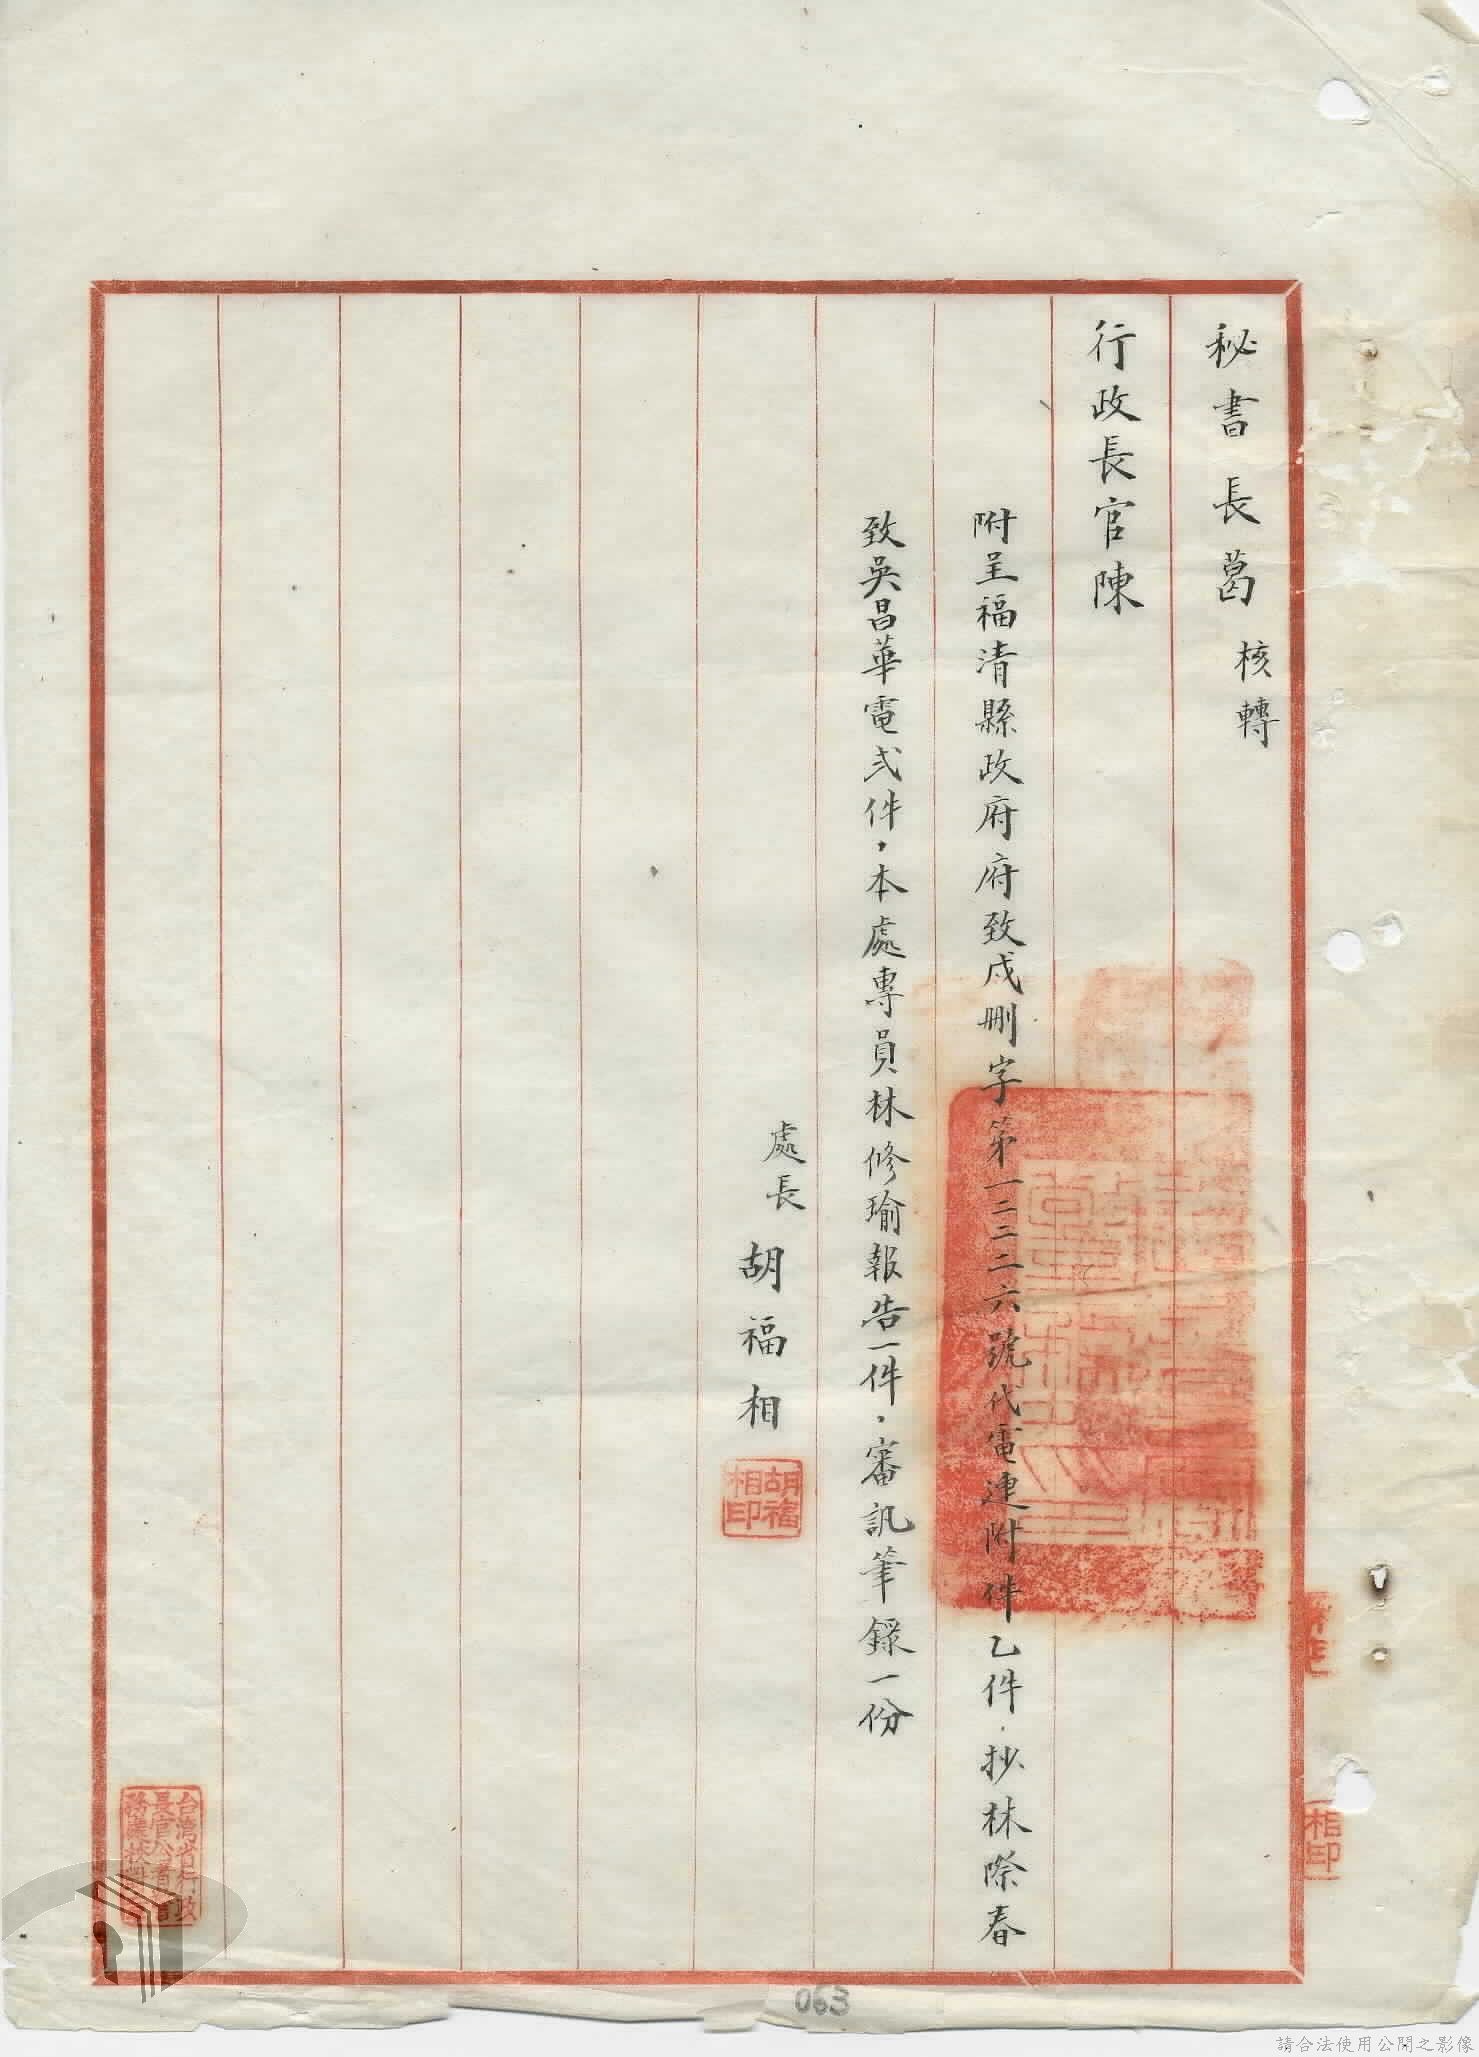 秘書長葛 核轉
行政長官陳
附呈福清縣政府府致戌刪字第一二二二六號代電連附件乙件．抄林際春
致吳昌華電弍件，本處專員林修瑜報告一件，審訊筆錄一份
處長 胡福相
胡福相印
相印
台湾省行政長官公署警務處
063
請合法使用公開之影像